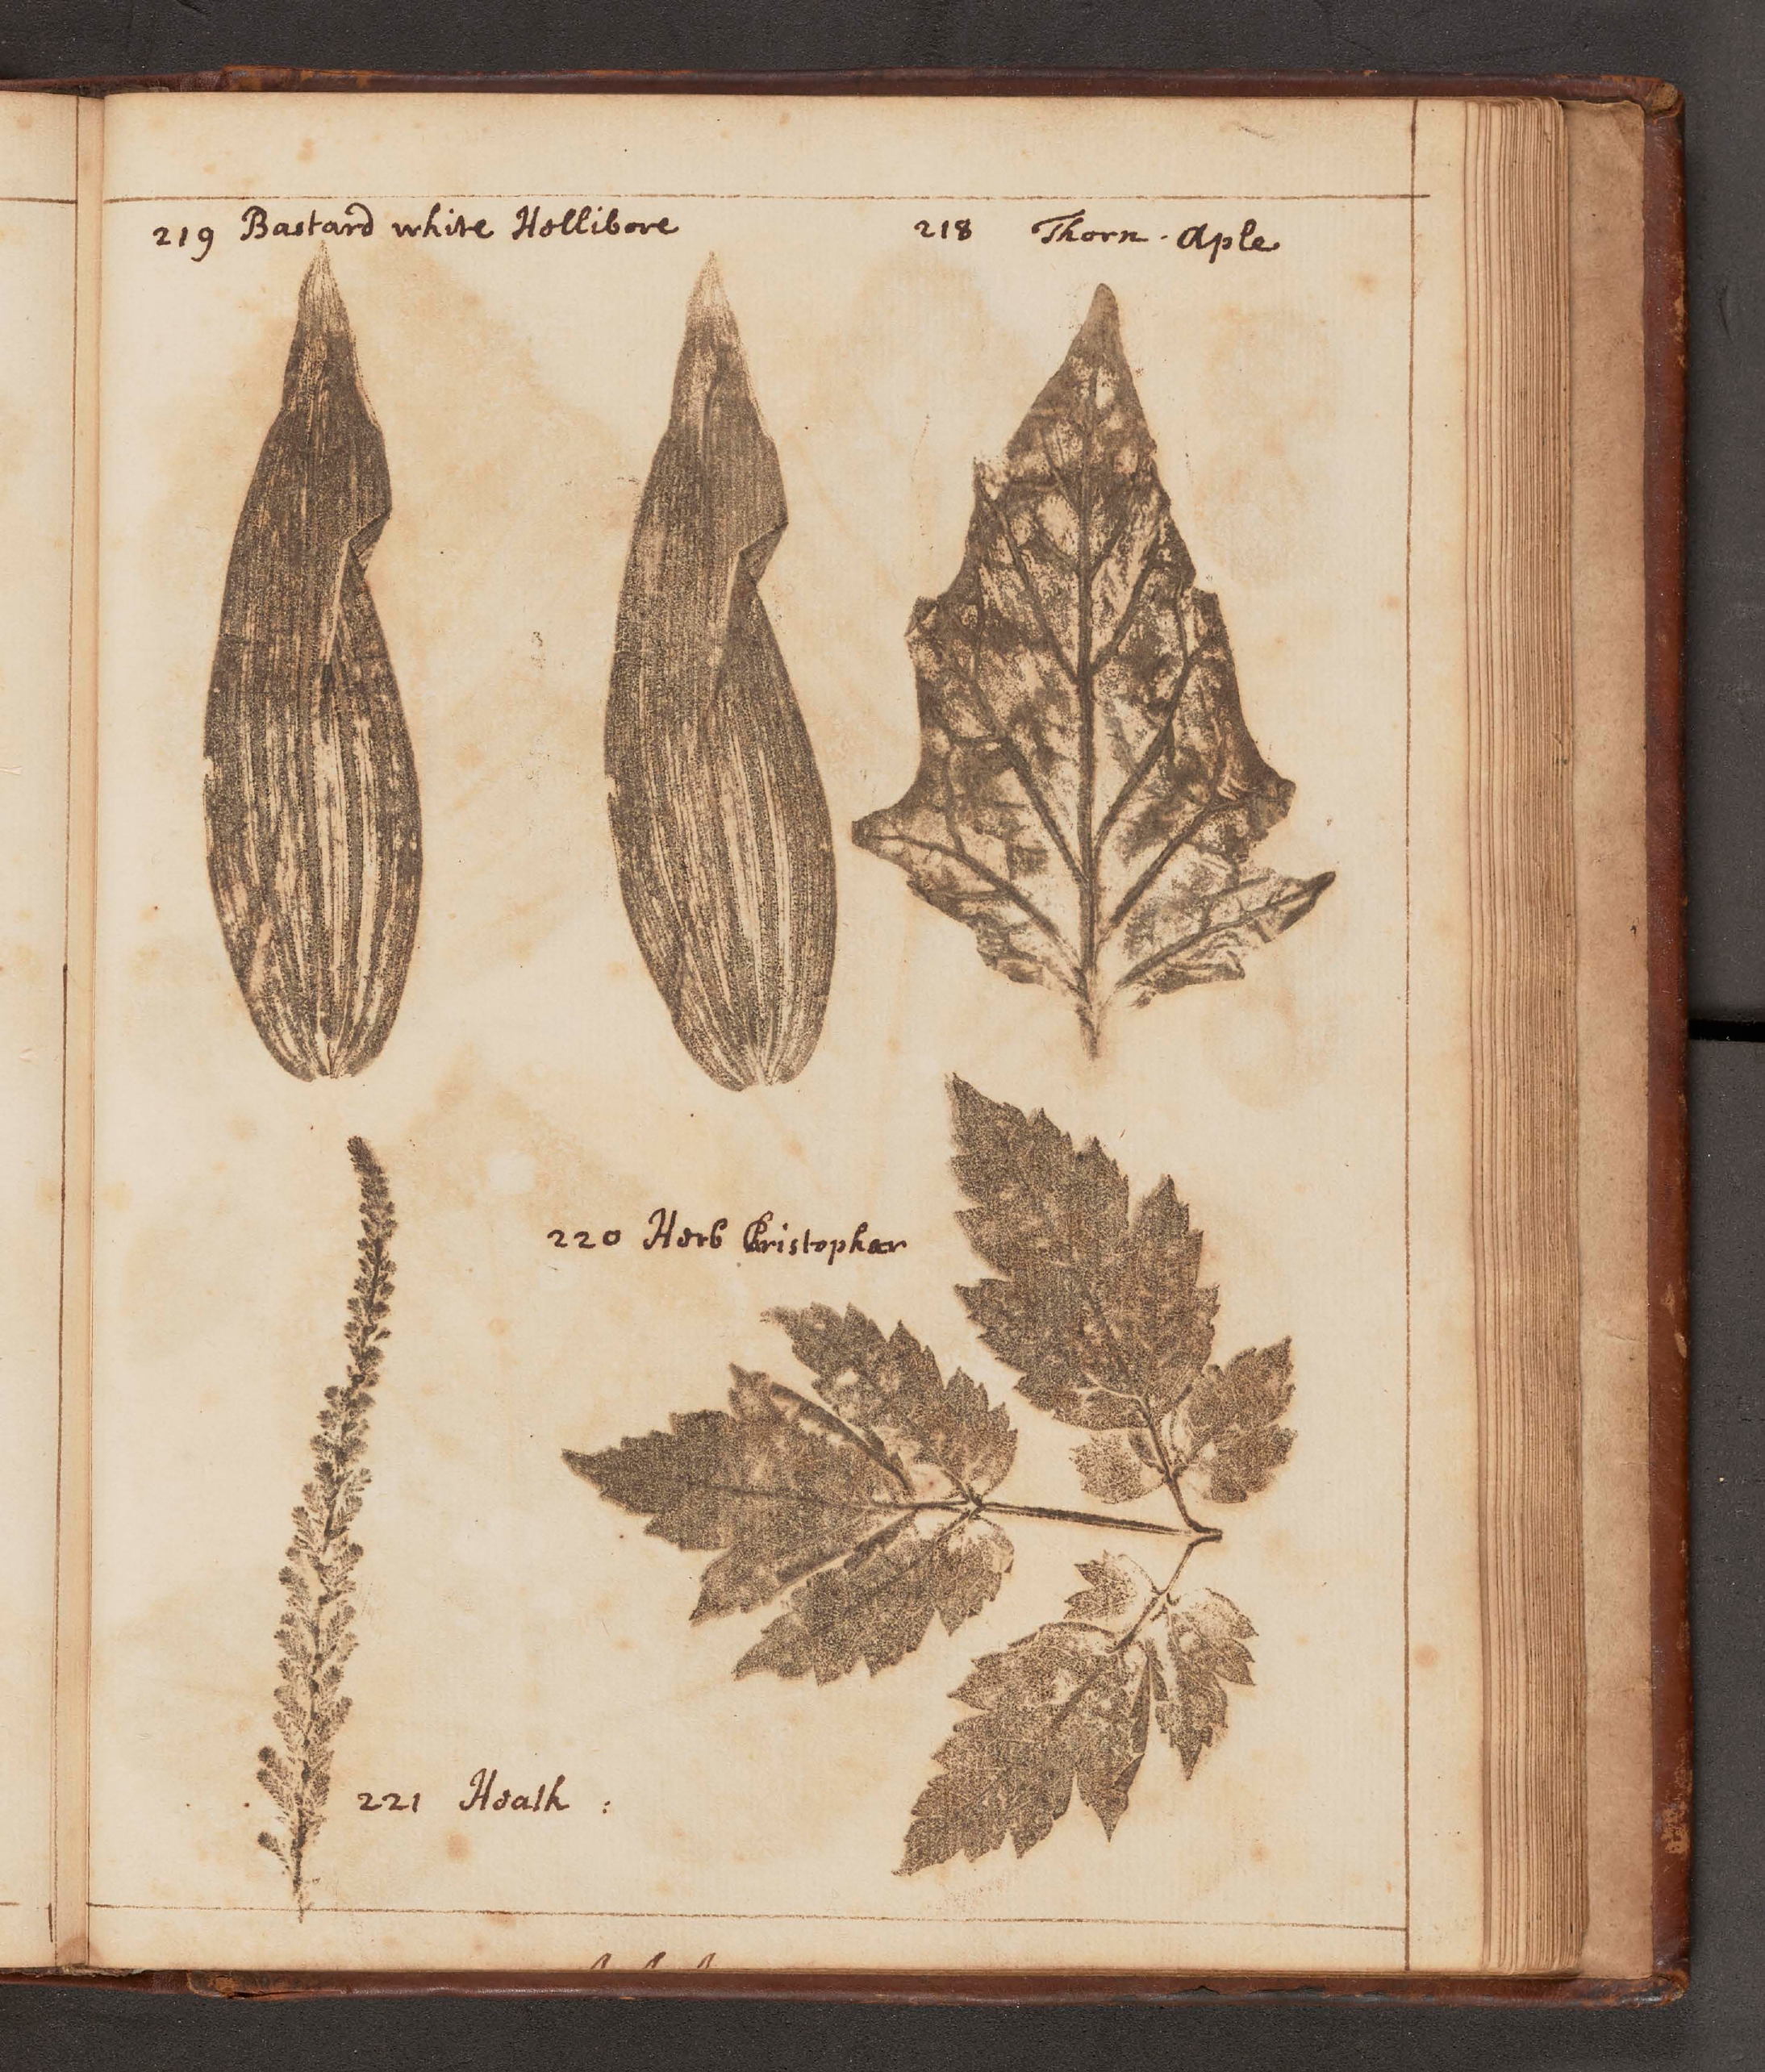 219 Bastard white Hellibore
218 Thorn-Aple
220 Herb Christopher
221 Heath :